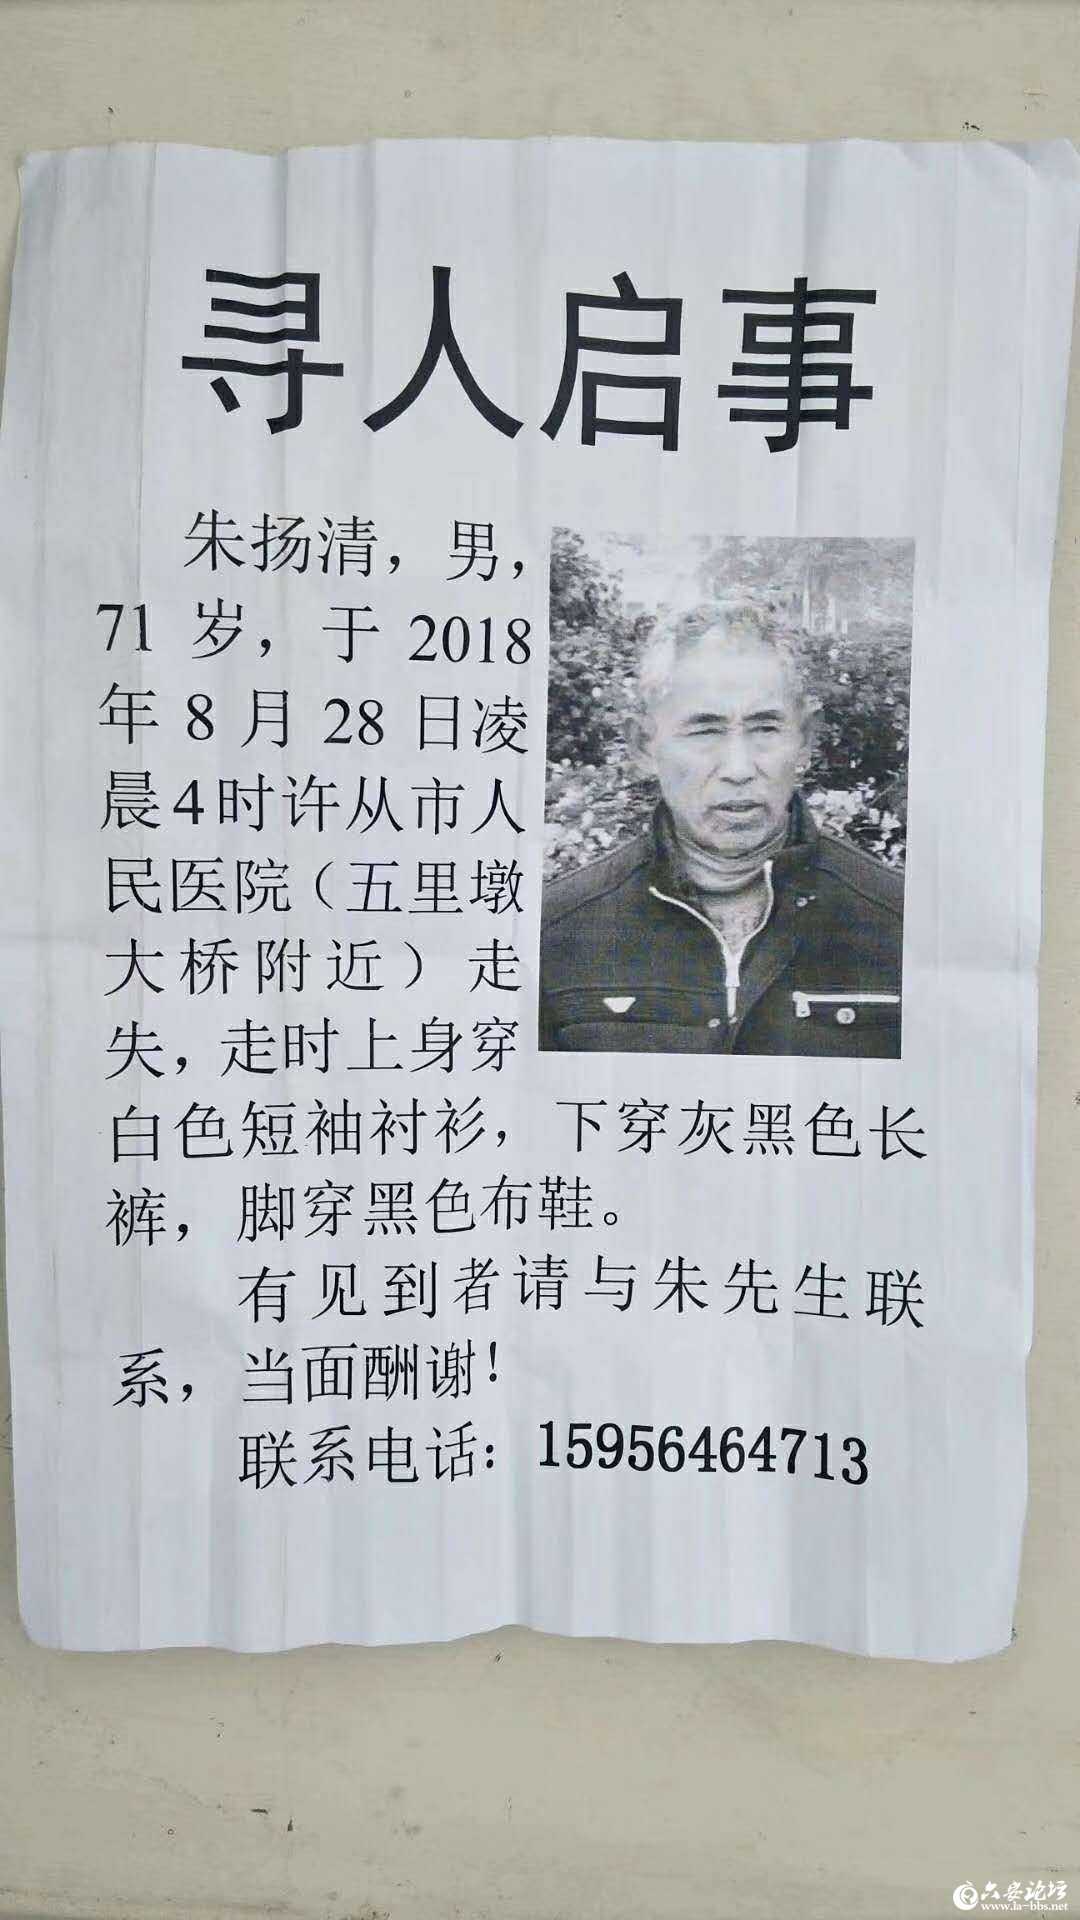 寻人启事
朱扬清，男，
71 岁，于 2018
年 8 月 28 日凌
晨4时许从市人
民医院（五里墩
大桥附近）走
失，走时上身穿
白色短袖衬衫，下穿灰黑色长
裤，脚穿黑色布鞋。
有见到者请与朱先生联
系，当面酬谢！
联系电话：15956464713
六安论坛
www.la-bbs.net